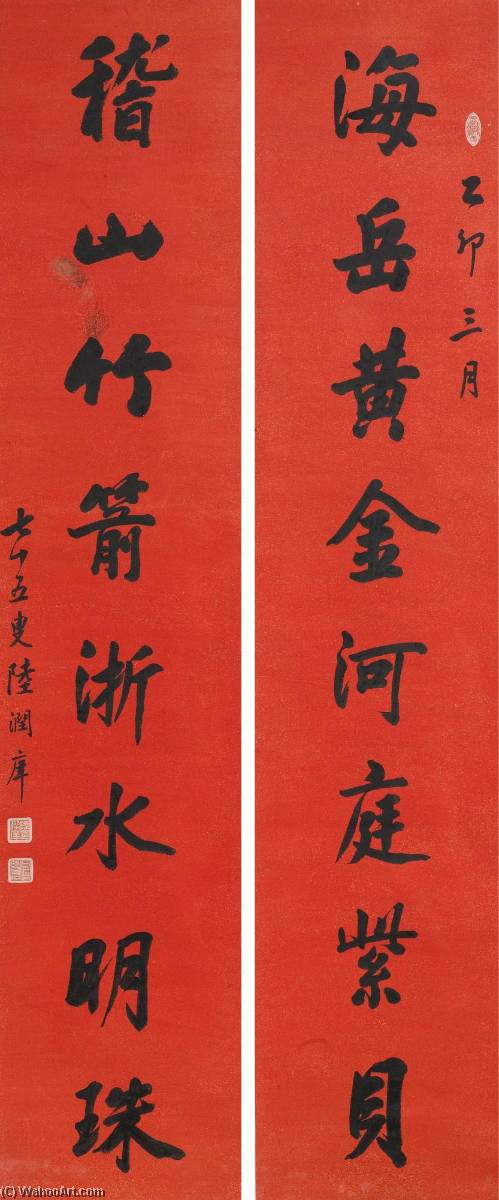 乙卯三月
海岳黄金河庭紫貝
稽山竹箭浙水明珠
七十五叟陸潤庠
(C) WahooArt.com